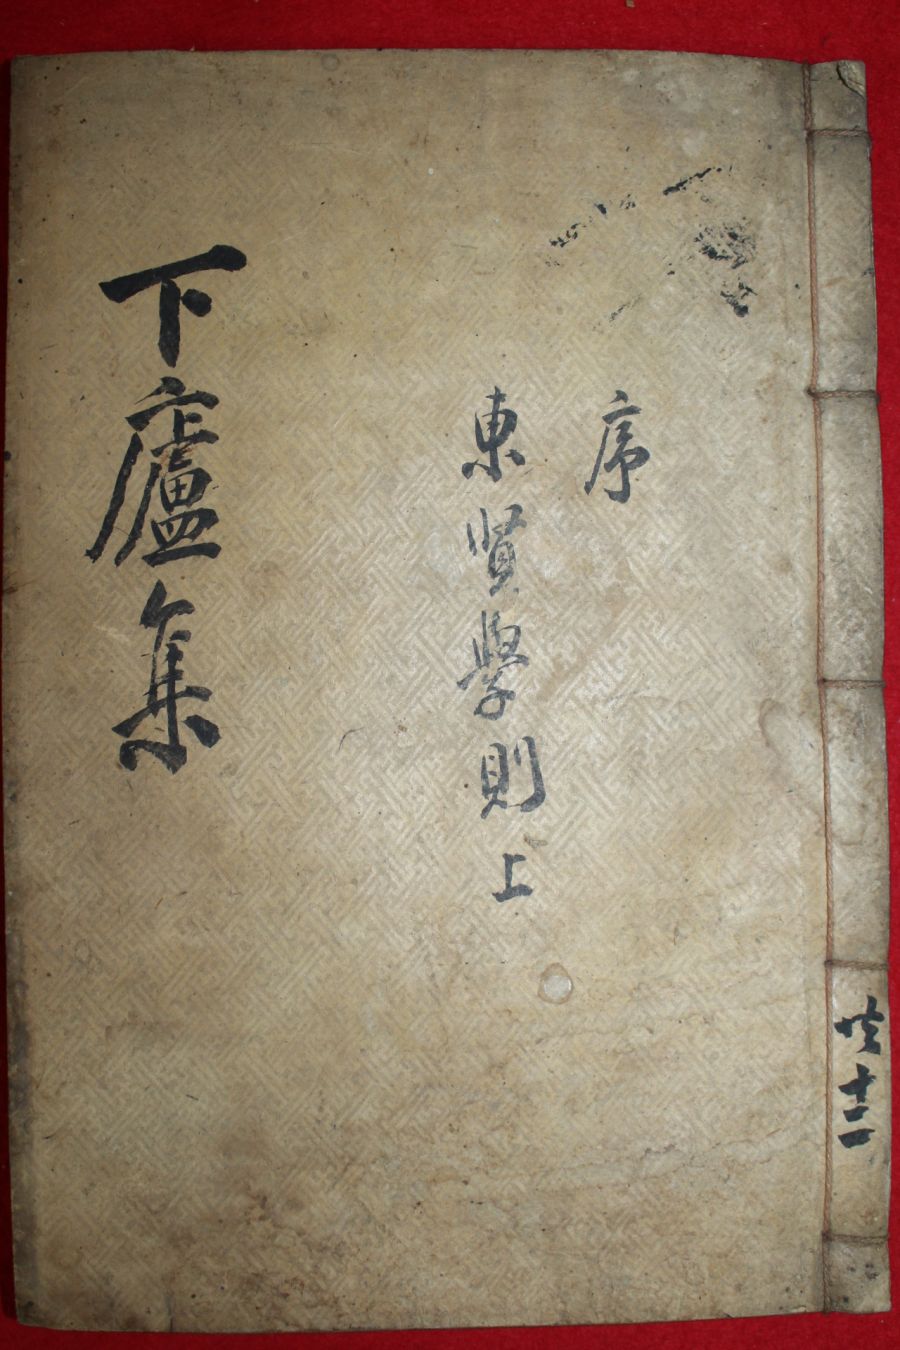 序
東賢學則上
下廬集
共十二